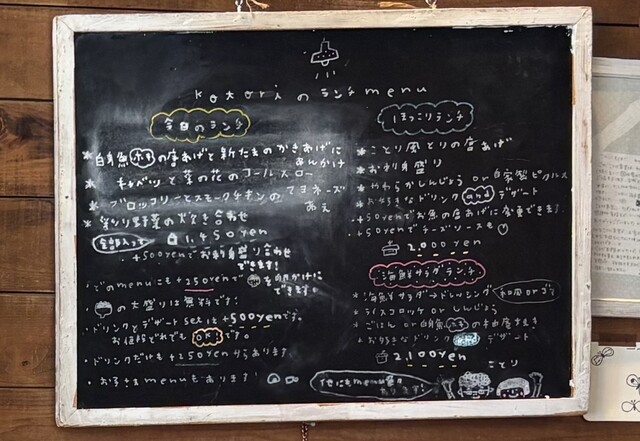 kotori のランチ menu
今日のランチ
＊白身魚の唐あげと新たまのかきあげに
あんかけ
＊キャベツと菜の花のコールスロー
＊ブロッコリーとスモークチキンのマヨネーズ
あえ
＊彩り野菜の炊き合わせ
1,450yen
・+500yenでお刺身盛り合わせ
できます!
・どのmenuにも+250yenで
を卵かけに
できます。
の大盛りは無料です!
・ドリンクとデザートsetは+500yenです。
お値段どれでも OK! です。
・ドリンクだけも+250yenからあります
・お子さまmenuもあります!
ほっこりランチ
＊ことり風とりの唐あげ
＊お刺身盛り
＊やわらかしんじょう or 自家製ピクルス
＊お好きなドリンク and デザート
・+50yenでお魚の唐あげに変更できます。
・+50yenでチーズソースも
2,000yen
海鮮サラダランチ
＊海鮮サラダ→ドレッシング 和風 or ゴマ
＊ライスコロッケ or しんじょう
＊ごはん or
＊お好きなドリンク デザート
2,100yen
ことり